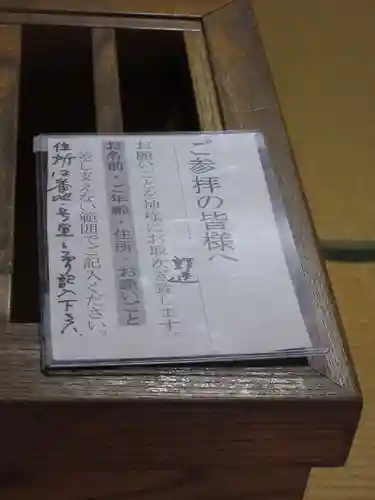 ご参拝の皆様へ
お願いごとを神様にお取次ぎ致します。
お名前・ご年齢・住所・お願いごと
差し支えない範囲でご記入ください。
住所は番地、号室まで記入下さい